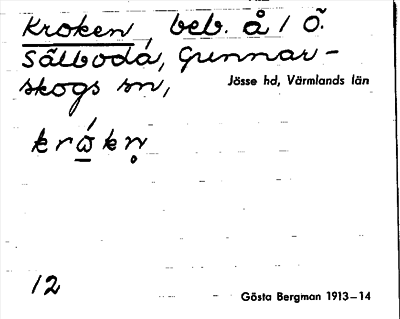 Kroken, beb. å 1 Ö.
Sälboda, Gunnar-
skogs sn,
Jösse hd, Värmlands län
krώ̲kn̥
12
Gösta Bergman 1913–14